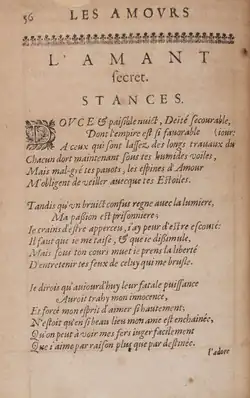 56 LES AMOVRS
L'AMANT
secret.
STANCES.
DOVCE & paisible nuict, Deité secourable,
Dont l'empire est si fauorable (iour:
A ceux qui sont lassez des longs trauaux du
Chacun dort maintenant sous tes humides voiles,
Mais mal-gré tes pauots, les espines d'Amour
M'obligent de veiller auecque tes Estoiles.
Tandis qu'vn bruict confus regne auec la lumiere,
Ma passion est prisonniere;
Ie crains d'estre apperceu, i'ay peur d'estre escouté:
Il faut que ie me taise, & que ie dissimule,
Mais sous ton cours muet ie prens la liberté
D'entretenir tes feux de celuy qui me brusle.
Ie dirois qu'auiourd'huy leur fatale puissance
Auroit trahy mon innocence,
Et forcé mon esprit d'aimer si hautement;
N'estoit qu'en si beau lieu mon ame est enchainée,
Qu'on peut à voir mes fers iuger facilement
Que i'aime par raison plus que par destinée.
I'adore